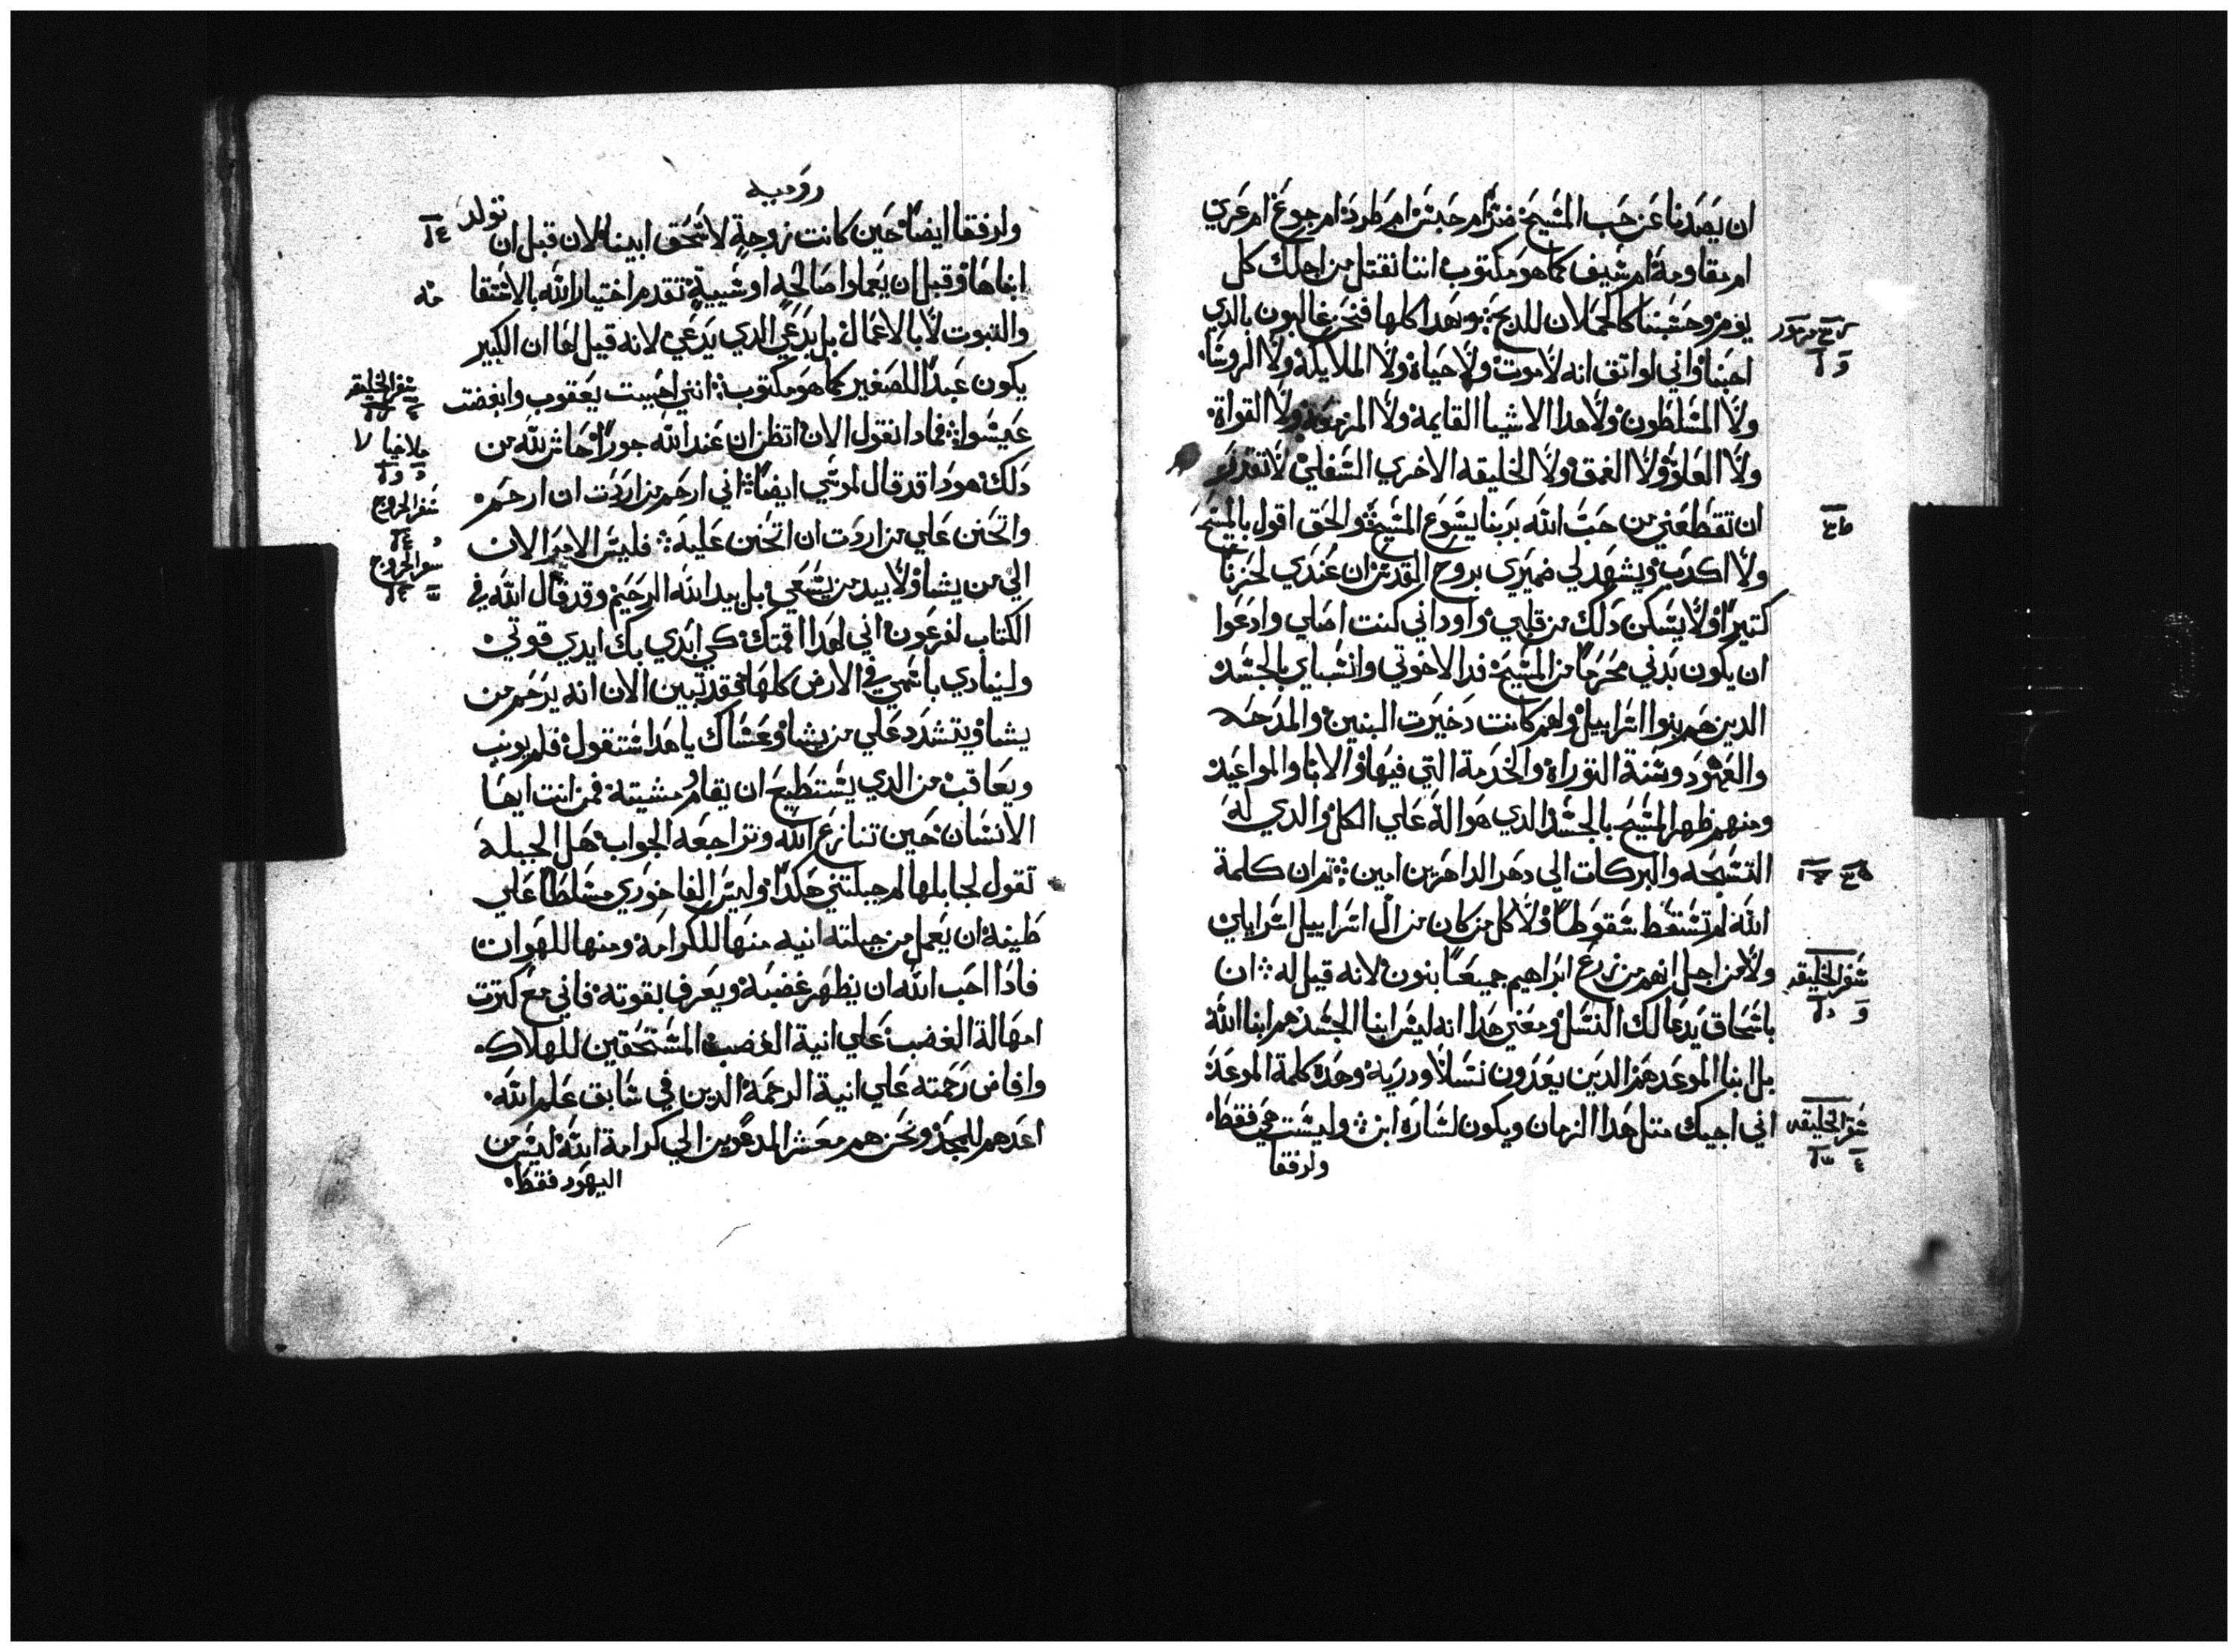 ان يصدنا عن حب المسيح ضر ام حبس ام طرد ام جوع ام عري
ام مقاومة ام سيف كما هو مكتوب اننا نقتل من اجلك كل
يوم وحسبنا كالحملان للدبح وبهدا كلها فنحن غالبون بالدي
احبنا واني لواتق انه لا موت ولا حياة ولا الملايكة ولا الروسا
ولا المسلطون ولا هدا الاشيا القايمة ولا المزمعة ولا القواة
ولا العلو ولا العمق ولا الخليقه الاخري السفلي لا تقدر
ان تقطعني من حب الله بربنا يسوع المسيح والحق اقول بالمسيح
ولا اكدب ويشهد لي ضميري بروح القدس ان عندي لحزنا
كتيرا ولا يسكن دلك من قلبي واود اني كنت اصلي وادعوا
ان يكون بدني محرما من المسيح فدا لاخوتي وانسباي بالجسد
الدين هم بنوا اسراييل ولهم كانت دخيرت البنين والمدحه
والعهود وسنة التوراة والخدمة التي فيها والابا والمواعيد
ومنهم ظهر المسيح بالجسد الدي هو اله علي الكل والدي له
التسبحه والبركات الي دهر الداهرين امين تم ان كلمة
الله لم تسقط سقوطا ولا كل من كان من ال اسراييل اسراييلي
ولا من اجل انهم من زرع ابراهيم جميعا بنون لانه قيل له ان
باسحاق يدعا لك النسل ومعني هدا انه ليس ابنا الجسد هم ابنا الله
بل ابنا الموعد هم الدين يعدون نسلا ودرية وهده كلمة الموعد
اني اجيك متل هدا الزمان ويكون لساره ابن وليست هي فقط
وارفقا
سفر الخليقه
سفر الخليقه
روميه
وارفقا ايضا حين كانت زوجة لاسحق ابينا لان قبل ان تولد
ابناها وقبل ان يعملوا صالحه او سييية تقدم اختيار الله بالاستقا
منه
والتبوت لا بالاعمال بل بدعي الدي يدعي لانه قيل لها ان الكبير
يكون عبدا للصغير كما هو مكتوب انني احببت يعقوب وابغضت
عيسوا فمادا نقول الان اتظن ان عند الله جورا حاش لله من
دلك هودا قد قال لموسي ايضا اني ارحم من اردت ان ارحم
واتحنن علي من اردت ان اتحنن عليه فليس الامر الان
الي من يشا ولا بيد من يسعي بل بيد الله الرحيم وقد قال الله في
الكتاب لفرعون اني لهدا اقمتك كي ابدي بك ايدي قوتي
ولينادي باسمي في الارض كلها فقد تبين الان انه يرحم من
يشا ويتشدد علي من يشا وعساك يا هدا ستقول فلم يونب
ويعاقب من الدي يستطيع ان يقاوم مشيته فمن انت ايها
الانسان حين تنازع الله وتراجعه الجواب هل الجبلة
تقول لجابلها لم جبلتني هكدا وليس الفاخوري مسلطا علي
طينة ان يعمل من جبلته انيه منها للكرامة ومنها للهوان
فادا احب الله ان يظهر غضبه ويعرف بقوته فاني مع كترت
امهالة الغضب علي انية الغضب المستحقين للهلاك
وافاض رحمته علي انية الرحمة الدين في سابق علم الله
اعدهم للمجد ونحن هم معشر المدعوين الي كرامة الله ليس من
اليهود فقط
سفر الخليقه
ملاخيا
سفر الخروج
سفر الخروج